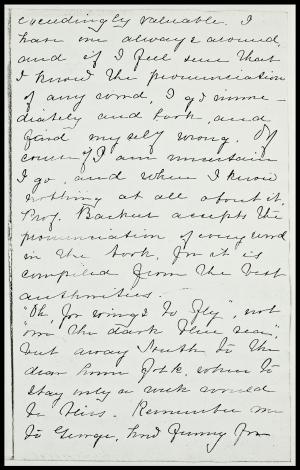 exceedingly valuable. I
have one always around,
and if I feel sure that
I know the pronunciation
of any word, I go imme-
diately and look, and
find myself wrong. Of
course if I am uncertain
I go, and when I know
nothing at all about it.
Prof. Backus accepts the
pronunciation of every word
in the book, for it is
compiled from the best
authorities.
"Oh, for wings to fly", not
"o'er the dark blue sea",
but away South to the
dear home folk, where to
stay only a week would
be bliss. Remember me
to George, and